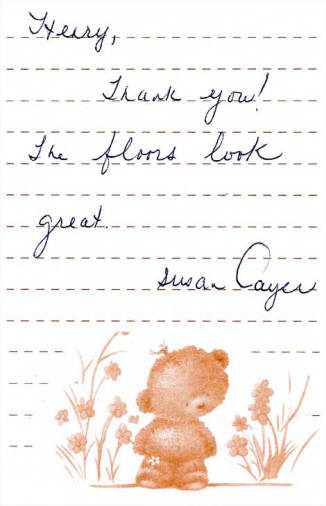 Henry,
Thank you!
The floors look
great.
Susan Cayer